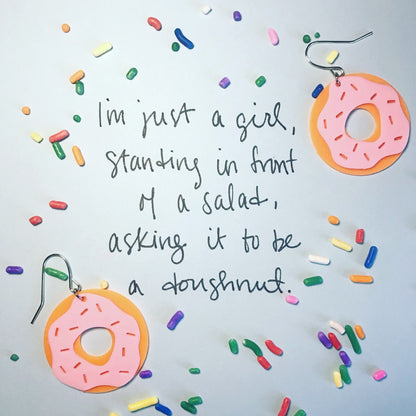 I'm just a girl,
standing in front
of a salad,
asking it to be
a doughnut.